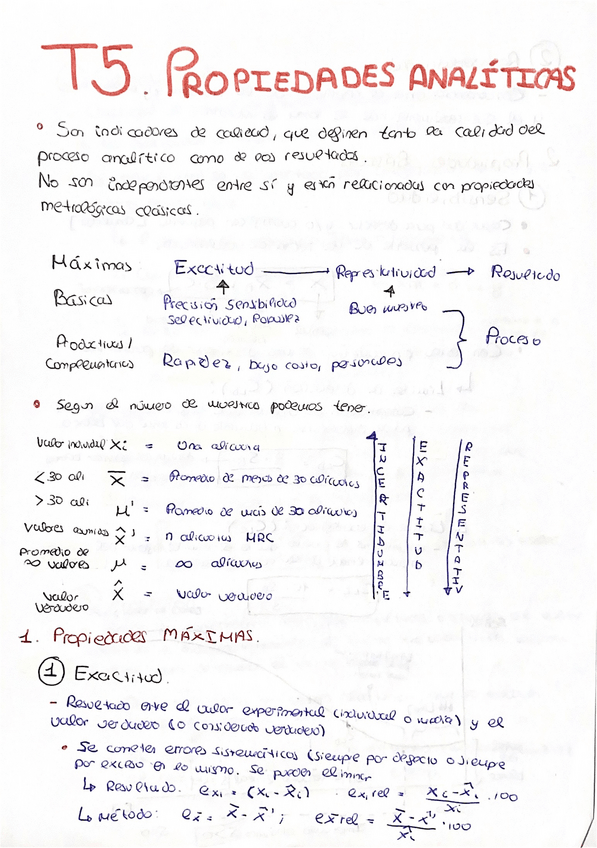 T5. PROPIEDADES ANALÍTICAS
• Son indicadores de calidad, que definen tanto la calidad del
proceso analítico como de los resultados.
No son independientes entre sí y están relacionadas con propiedades
metrológicas clásicas.
Máximas Exactitud → Representatividad → Resultado
Básicas Precisión Sensibilidad Buen muestreo
selectividad, Robustez
Proceso
Productivas /
Complementarias Rapidez, bajo costo, personales
• Segun el número de muestras podemos tener.
Valor individual Xi = Una alicuota
<30 ali X̄ = Promedio de menos de 30 alícuotas
>30 ali μ' = Promedio de más de 30 alícuotas
Valores asumidos X̂' = n alicuotas MRC
promedio de
∞ valores μ = ∞ alícuotas
Valor
verdadero X̂ = valor verdadero
INCERTIDUMBRE
EXACTITUD
REPRESENTATIV
1. Propiedades MÁXIMAS.
① Exactitud.
- Resultado entre el valor experimental (individual o media) y el
valor verdadero (o considerado verdadero)
• Se cometen errores sistemáticos (siempre por defecto o siempre
por exceso en lo mismo. Se pueden eliminar
↳ Resultado: exi = (xi - X̂i) · exi,rel = (xi - x̂i)/xi · 100
↳ Método: ex̄ = x̄ - x̂'; ex̄ rel = (x̄ - x̂')/x̂' · 100